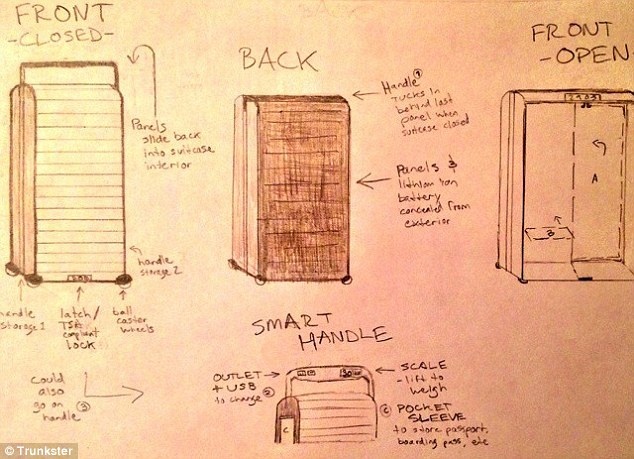 FRONT
-CLOSED-
BACK
FRONT
-OPEN-
Panels
slide back
into suitcase
interior
Handle ①
Tucks in
behind last
panel when
suitcase closed
Panels &
lithium ion
battery
concealed from
exterior
A
B
handle
storage 2
handle
storage 1
latch/
TSA
compliant
lock
ball
caster
wheels
could
also
go on
handle ③
SMART
HANDLE
OUTLET
+ USB
to charge ②
SCALE
- lift to
weigh
C
© POCKET
SLEEVE
to store passport,
boarding pass, etc
© Trunkster